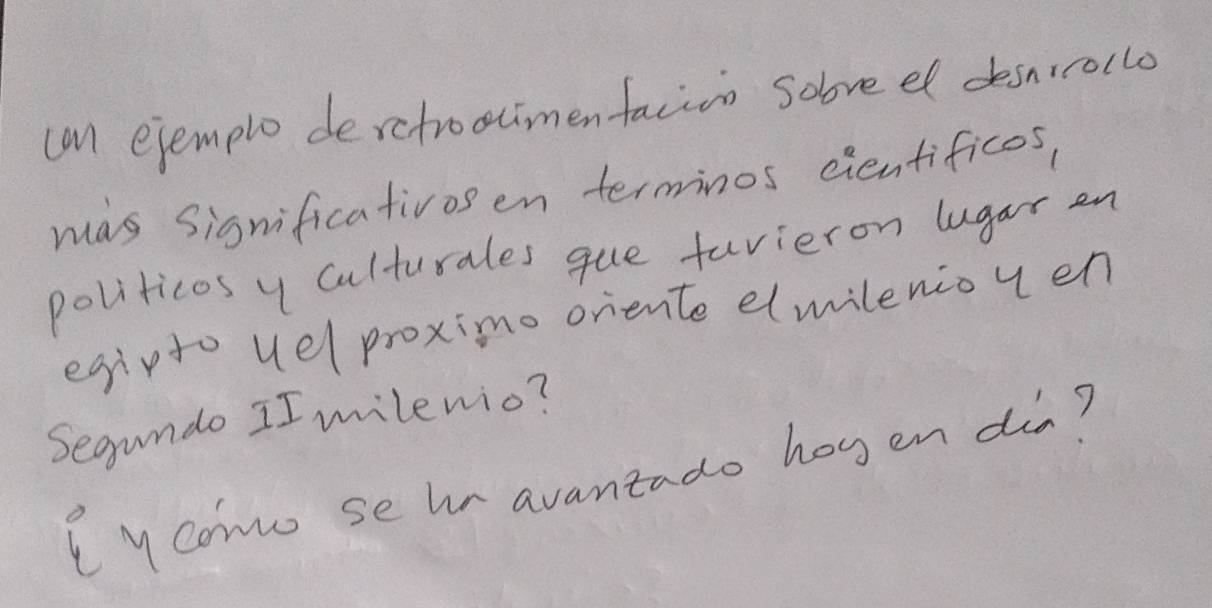 un ejemplo de retroalimentación sobre el desarrollo
más significativos en terminos cientificos,
politicos y culturales que tuvieron lugar en
egipto y el proximo oriente el milenio y en
Segundo II milenio?
¿ y cómo se ha avanzado hoy en día?